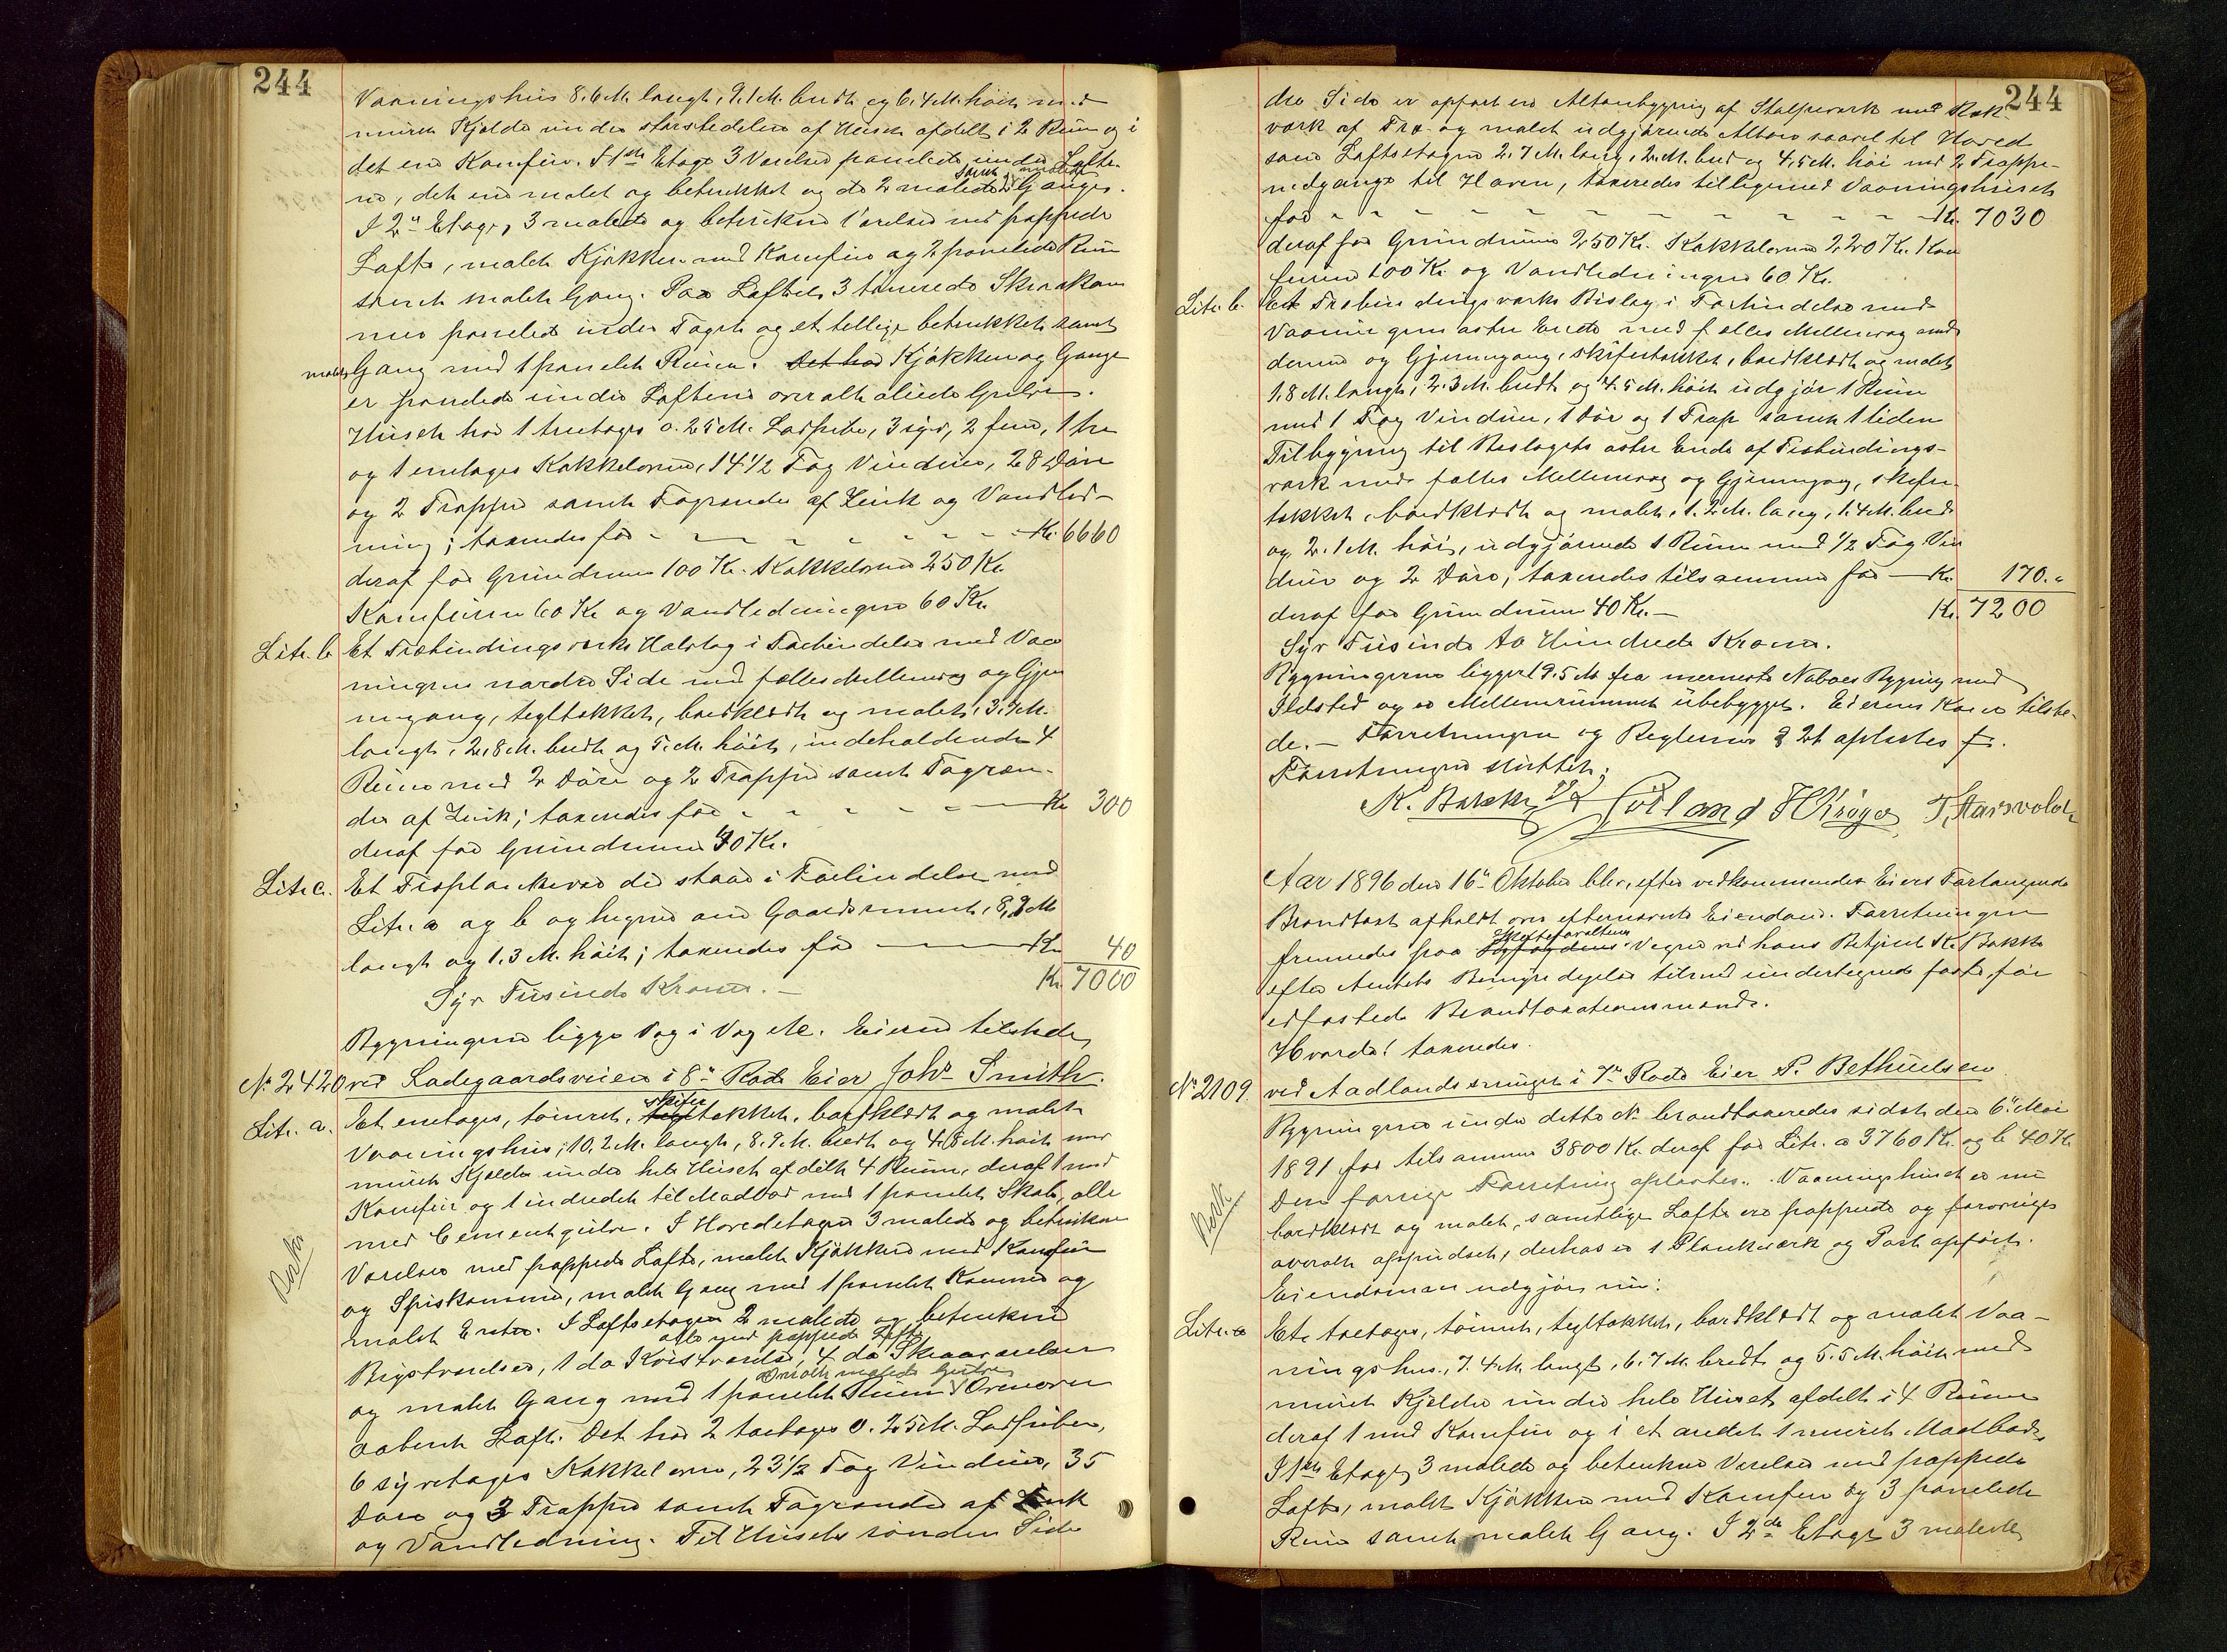 244
Vaaningshus 8.6 M. langt, 9.1 M. bredt og 6.4 M. höit med
muret Kjelder under störstedelen af Huset afdelt i 2 Rum og i
det ene Komfur. I 1ste Etage 3 Værelser panelede under Lofte-
ne, det ene malet og betrukket og de 2 malede samt 2 malede Gange.
I 2den Etage, 3 malede og betrukne Værelser med pappede
Lofte, malet Kjökken med Komfur og 2 panelede Rum
samt malet Gang. Paa Loftet 3 tömrede Skraakam
mer panelede under Taget og et tillige betrukket samt
malet Gang med 1 panelet Rum. Det har Kjökken og Gange
er panelede under Loftene overalt oliede Gulve.
Huset har 1 treetages 0.25 M. Ladpibe, 3 syv, 2 fem, 1 tre
og 1 enetages Kakkelovne, 14 1/2 Fag Vinduer, 28 Döre
og 2 Trapper samt Tagrender af Zink og Vandled-
ning; taxeredes for - - - - - - - Kr. 6660
deraf for Grundmuren 100 Kr. Kakkelovne 250 Kr.
Komfuren 60 Kr. og Vandledningen 60 Kr.
Litr. b. Et Træbindingsverks Halvtag i Forbindelse med Vaa
ningens nordre Side med fælles Mellemvæg og Gjen
nemgang, tegltækket, bordklædt og malet, 3.7 M.
langt, 2.8 M. bredt og 5. M. höit, indeholdende 4
Rum med 2 Döre og 2 Trapper samt Tagren-
der af Zink; taxeredes for - - - - - Kr. 300
deraf for Grundmuren 40 Kr.
Litr. c. Et Træplankeværk der staar i Forbindelse med
Litr. a og b og hegner om Gaardsrummet, 8,9 M.
langt og 1.3 M. höit; taxeredes for Kr. 40
Kr. 7000
Syv Tusinde Kroner. -
Bygningerne ligge Vag i Vag etc. Eieren tilstede
No 2420 ved Ladegaardsveien i 8de Rode Eier Johs Smith.
Litr. a. Et enetages, tömret, skifertækket, bordklædt og malet
Vaaningshus, 10.2 M. langt, 8.9 M. bredt og 4.8 M. höit med
muret Kjelder under hele Huset afdelt 4 Rum, deraf 1 med
Komfur og 1 indredet til Madbod med 1 panelet Skab, alle
med Cementgulve. I Hovedetagen 3 malede og betrukne
Værelser med pappede Lofte, malet Kjökken med Komfur
og Spiskammer, malet Gang med 1 panelet Kammer og
malet Entre. I Loftsetagen 2 malede og betrukne
alle med pappede Lofte
Bagstværelser, 1 do Kvistværelse, 4 do Skraaværelser
overalt malede Gulve
og malet Gang med 1 panelet Rum. Ovenover
aabent Loft. Det har 2 toetages 0.25 M. Ladpiber,
6 syvetages Kakkelovne, 23 1/2 Fag Vinduer, 35
Döre og 3 Trapper samt Tagrender af Zink
og Vandledning. Til Husets söndre Side
244
dre Side er opfört en Altanbygning af Stolpeverk med Ræk-
værk af Træ og malet udgjörende Altan saavel til Hoved
som Loftsetagen 2.7 M. lang, 2. M. bred og 4,5 M. höi med 2 Trappe-
nedgange til Haven, taxeredes tilligemed Vaaningshuset
for - - - - - - - - - - - Kr. 7030
deraf for Grundmuren 250 Kr. Kakkelovne 220 Kr. Kom
furen 100 Kr. og Vandledningen 60 Kr.
Litr. b. Et Træbindingsværks Bislag i Forbindelse med
Vaaningens östre Ende med fælles Mellemvæg med
denne og Gjennemgang, skifertækket, bordklædt og malet
1.8 M. langt, 2.3 M. bredt og 4.5 M. höit udgjör 1 Rum
med 1 Fag Vindue, 1 Dör og 1 Trap samt 1 liden
Tilbygning til Bislagets östre Ende af Træbindings-
værk med fælles Mellemvæg og Gjennemgang, skifer-
tækket, bordklædt og malet, 1.2 M. lang, 1.4 M. bred
og 2.1 M. höi, udgjörende 1 Rum med 1/2 Fag Vin
due og 2 Döre; taxeredes tilsammen for - Kr. 170.-
deraf for Grundmuren 40 Kr. - Kr. 7200
Syv Tusinde to Hundrede Kroner.
Bygningerne ligger 19.5 M. fra nærmeste Naboes Bygning med
Ildsted og er Mellemrummet ubebygget. Eierens Kone tilste-
de. - Forretningen og Reglernes § 21 oplæstes
Forretningen sluttet.
K. Bakke HKröger T. Starvolds
Aar 1896 den 16de Oktober blev, efter vedkommendes Eieres Forlangende
Brandtaxt afholdt over efternævnte Eiendom. Forretningen
fremmedes paa Magistratens Vegne ved hans Betjent K. Bakke
efter Amtets Bemyndigelse tilmed undertegnede faste, för
edfæstede Brandtaxationsmænd.
Hvorda! taxeredes.
No 2109. ved Aadlandssvinget i 7de Rode Eier P. Bethuelsen
Bygningerne under dette No brandtaxeredes sidst den 6te Mai
1891 for tilsammen 3800 Kr. deraf for Litr. a 3760 Kr. og b 40 Kr.
Den forrige Forretning oplæstes. Vaaningshuset er nu
bordklædt og malet, samtlige Lofte ere pappede og forövrigt
overalt oppudset, derhos er 1 Plankeværk og Port opfört.
Eiendommen udgjör nu:
Litr. a Et toetages, tömret, tegltækket, bordklædt og malet Vaa-
ningshus, 7.4 M. langt, 6.7 M. bredt og 5.5 M. höit med
muret Kjelder under hele Huset afdelt i 4 Rum
deraf 1 med Komfur og i et andet 1 muret Madbod.
I 1ste Etage 3 malede og betrukne Værelser med pappede
Lofte, malet Kjökken med Komfur og 3 panelede
Rum samt malet Gang. I 2de Etage 3 malede